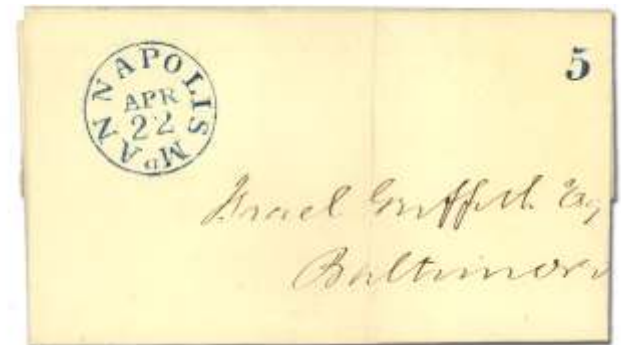 ANNAPOLIS Md
APR
22
5
Israel Griffith Esq
Baltimore